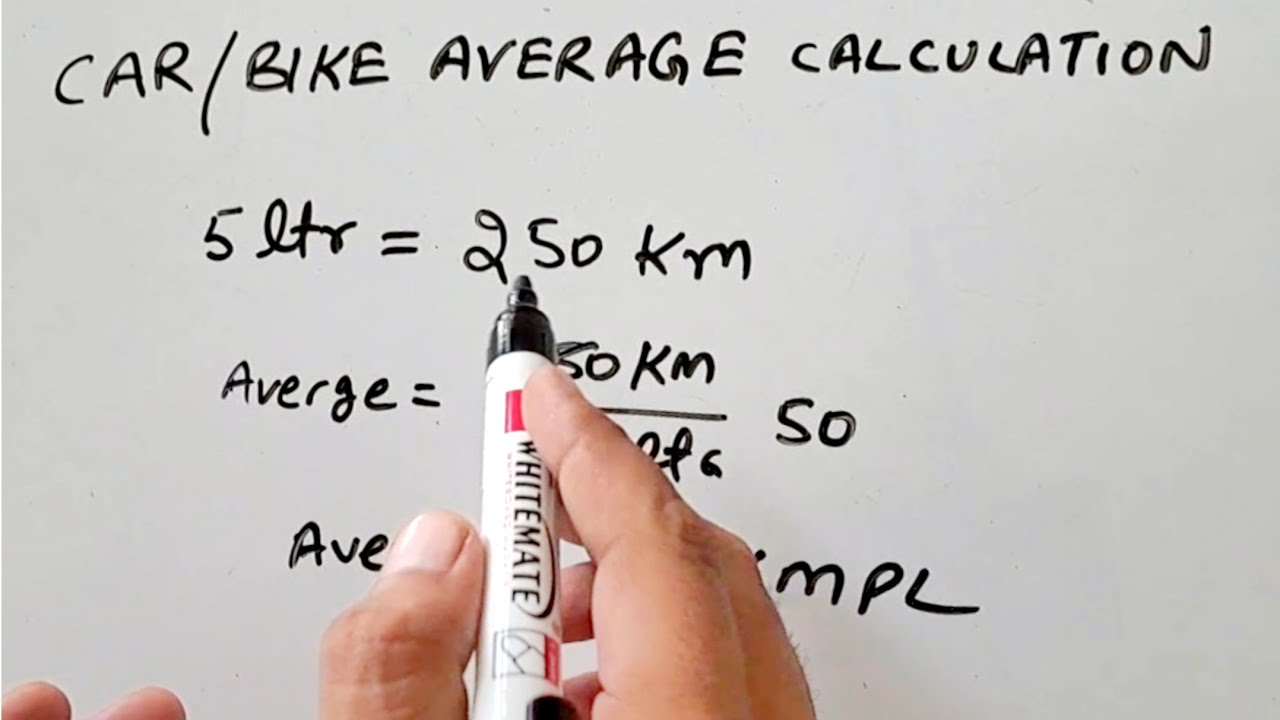 CAR/BIKE AVERAGE CALCULATION
5 ltr = 250 Km
Averge = 50 Km 50
Ave MPL
WHITEMATE